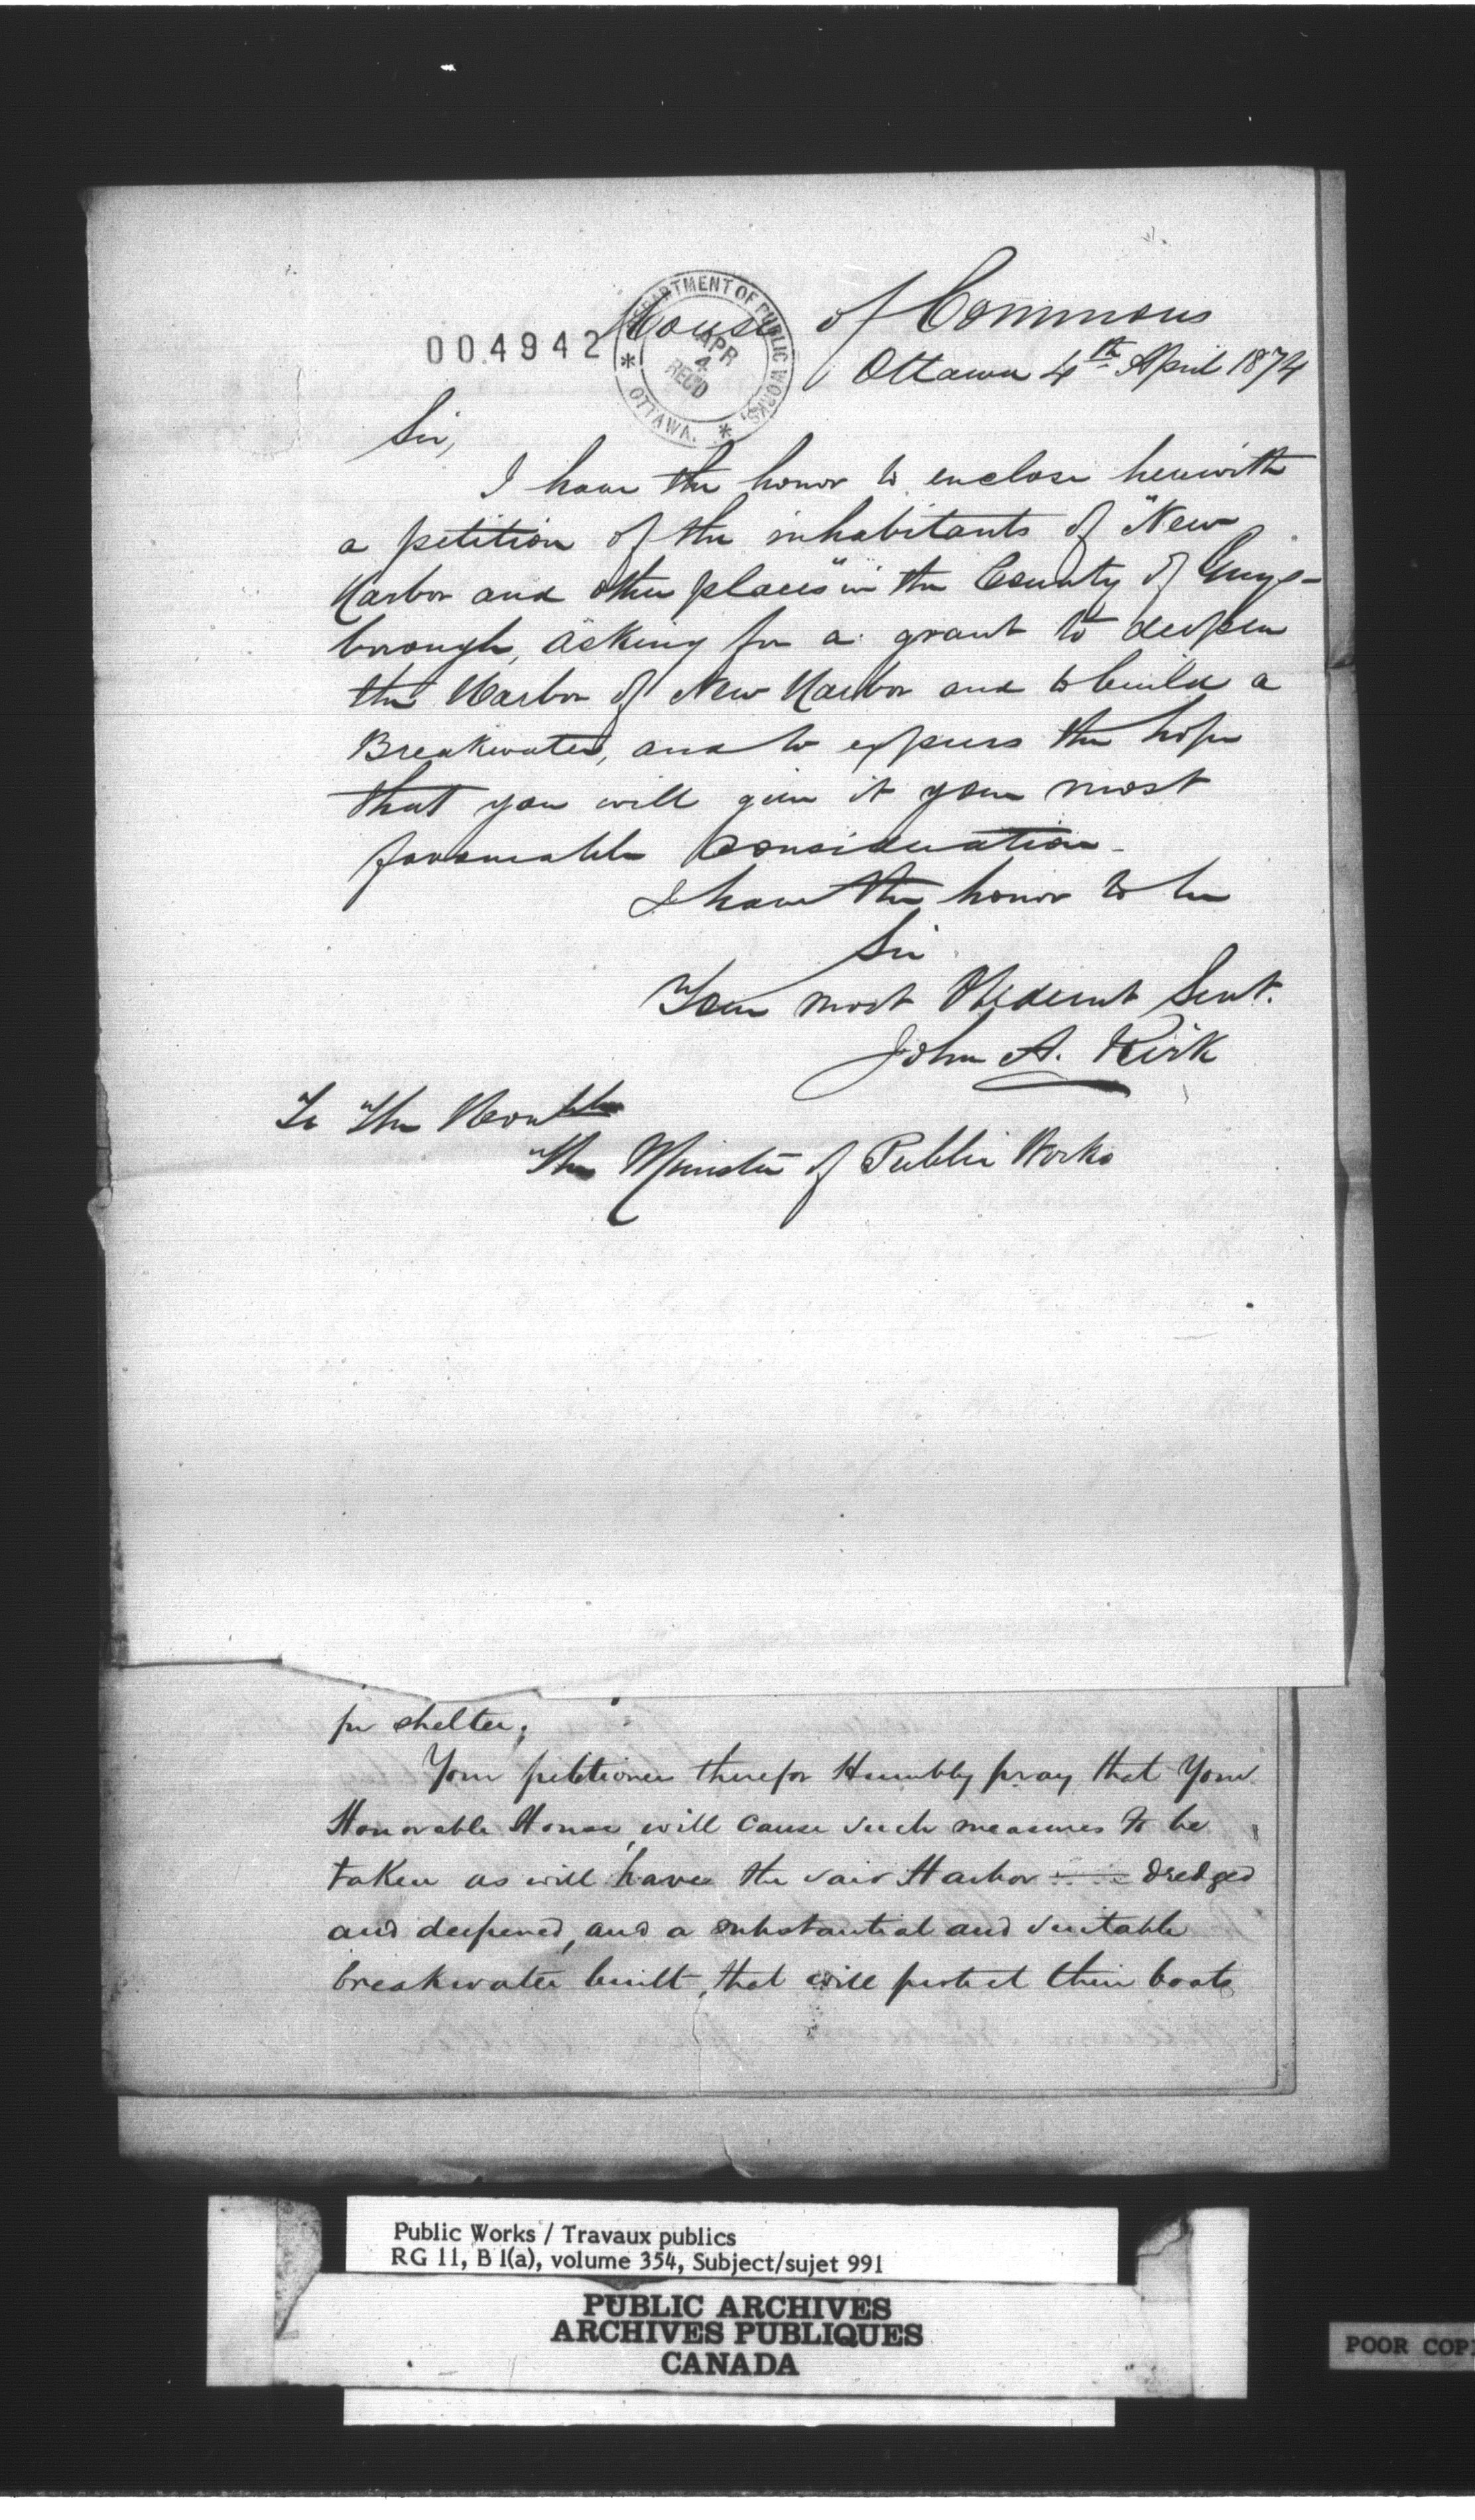 004942
DEPARTMENT OF PUBLIC WORKS,
APR
4
REC'D
* OTTAWA. *
House of Commons
Ottawa 4th April 1874
Sir,
I have the honor to enclose herewith
a petition of the inhabitants of "New
Harbor and other places" in the County of Guys-
borough, asking for a grant to deepen
the Harbor of New Harbor and to build a
Breakwater, and to express the hope
that you will give it your most
favourable consideration.
I have the honor to be
Sir
Your most Obedient Servt.
John A. Kirk
To The Honble
The Minister of Public Works
for shelter;
Your petitioners therefor Humbly pray that Your
Honorable House, will cause such measures to be
taken as will have the said Harbor dredged
and deepened, and a substantial and suitable
breakwater built, that will protect their boats
Public Works / Travaux publics
RG 11, B 1(a), volume 354, Subject/sujet 991
PUBLIC ARCHIVES
ARCHIVES PUBLIQUES
CANADA
POOR COPY